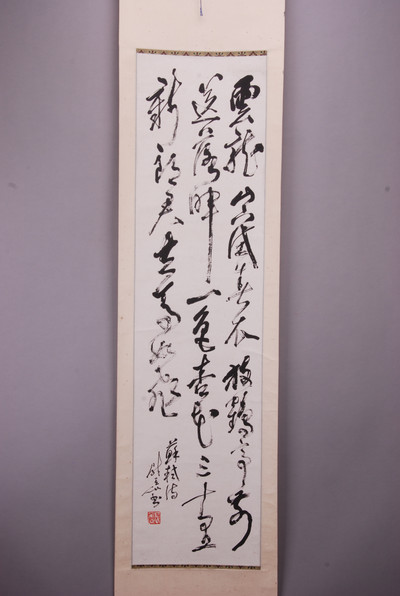 雲龍山下試春衣放鶴亭前
送落暉一色杏花三十里
新郎君去馬如飛
蘇軾詩
書